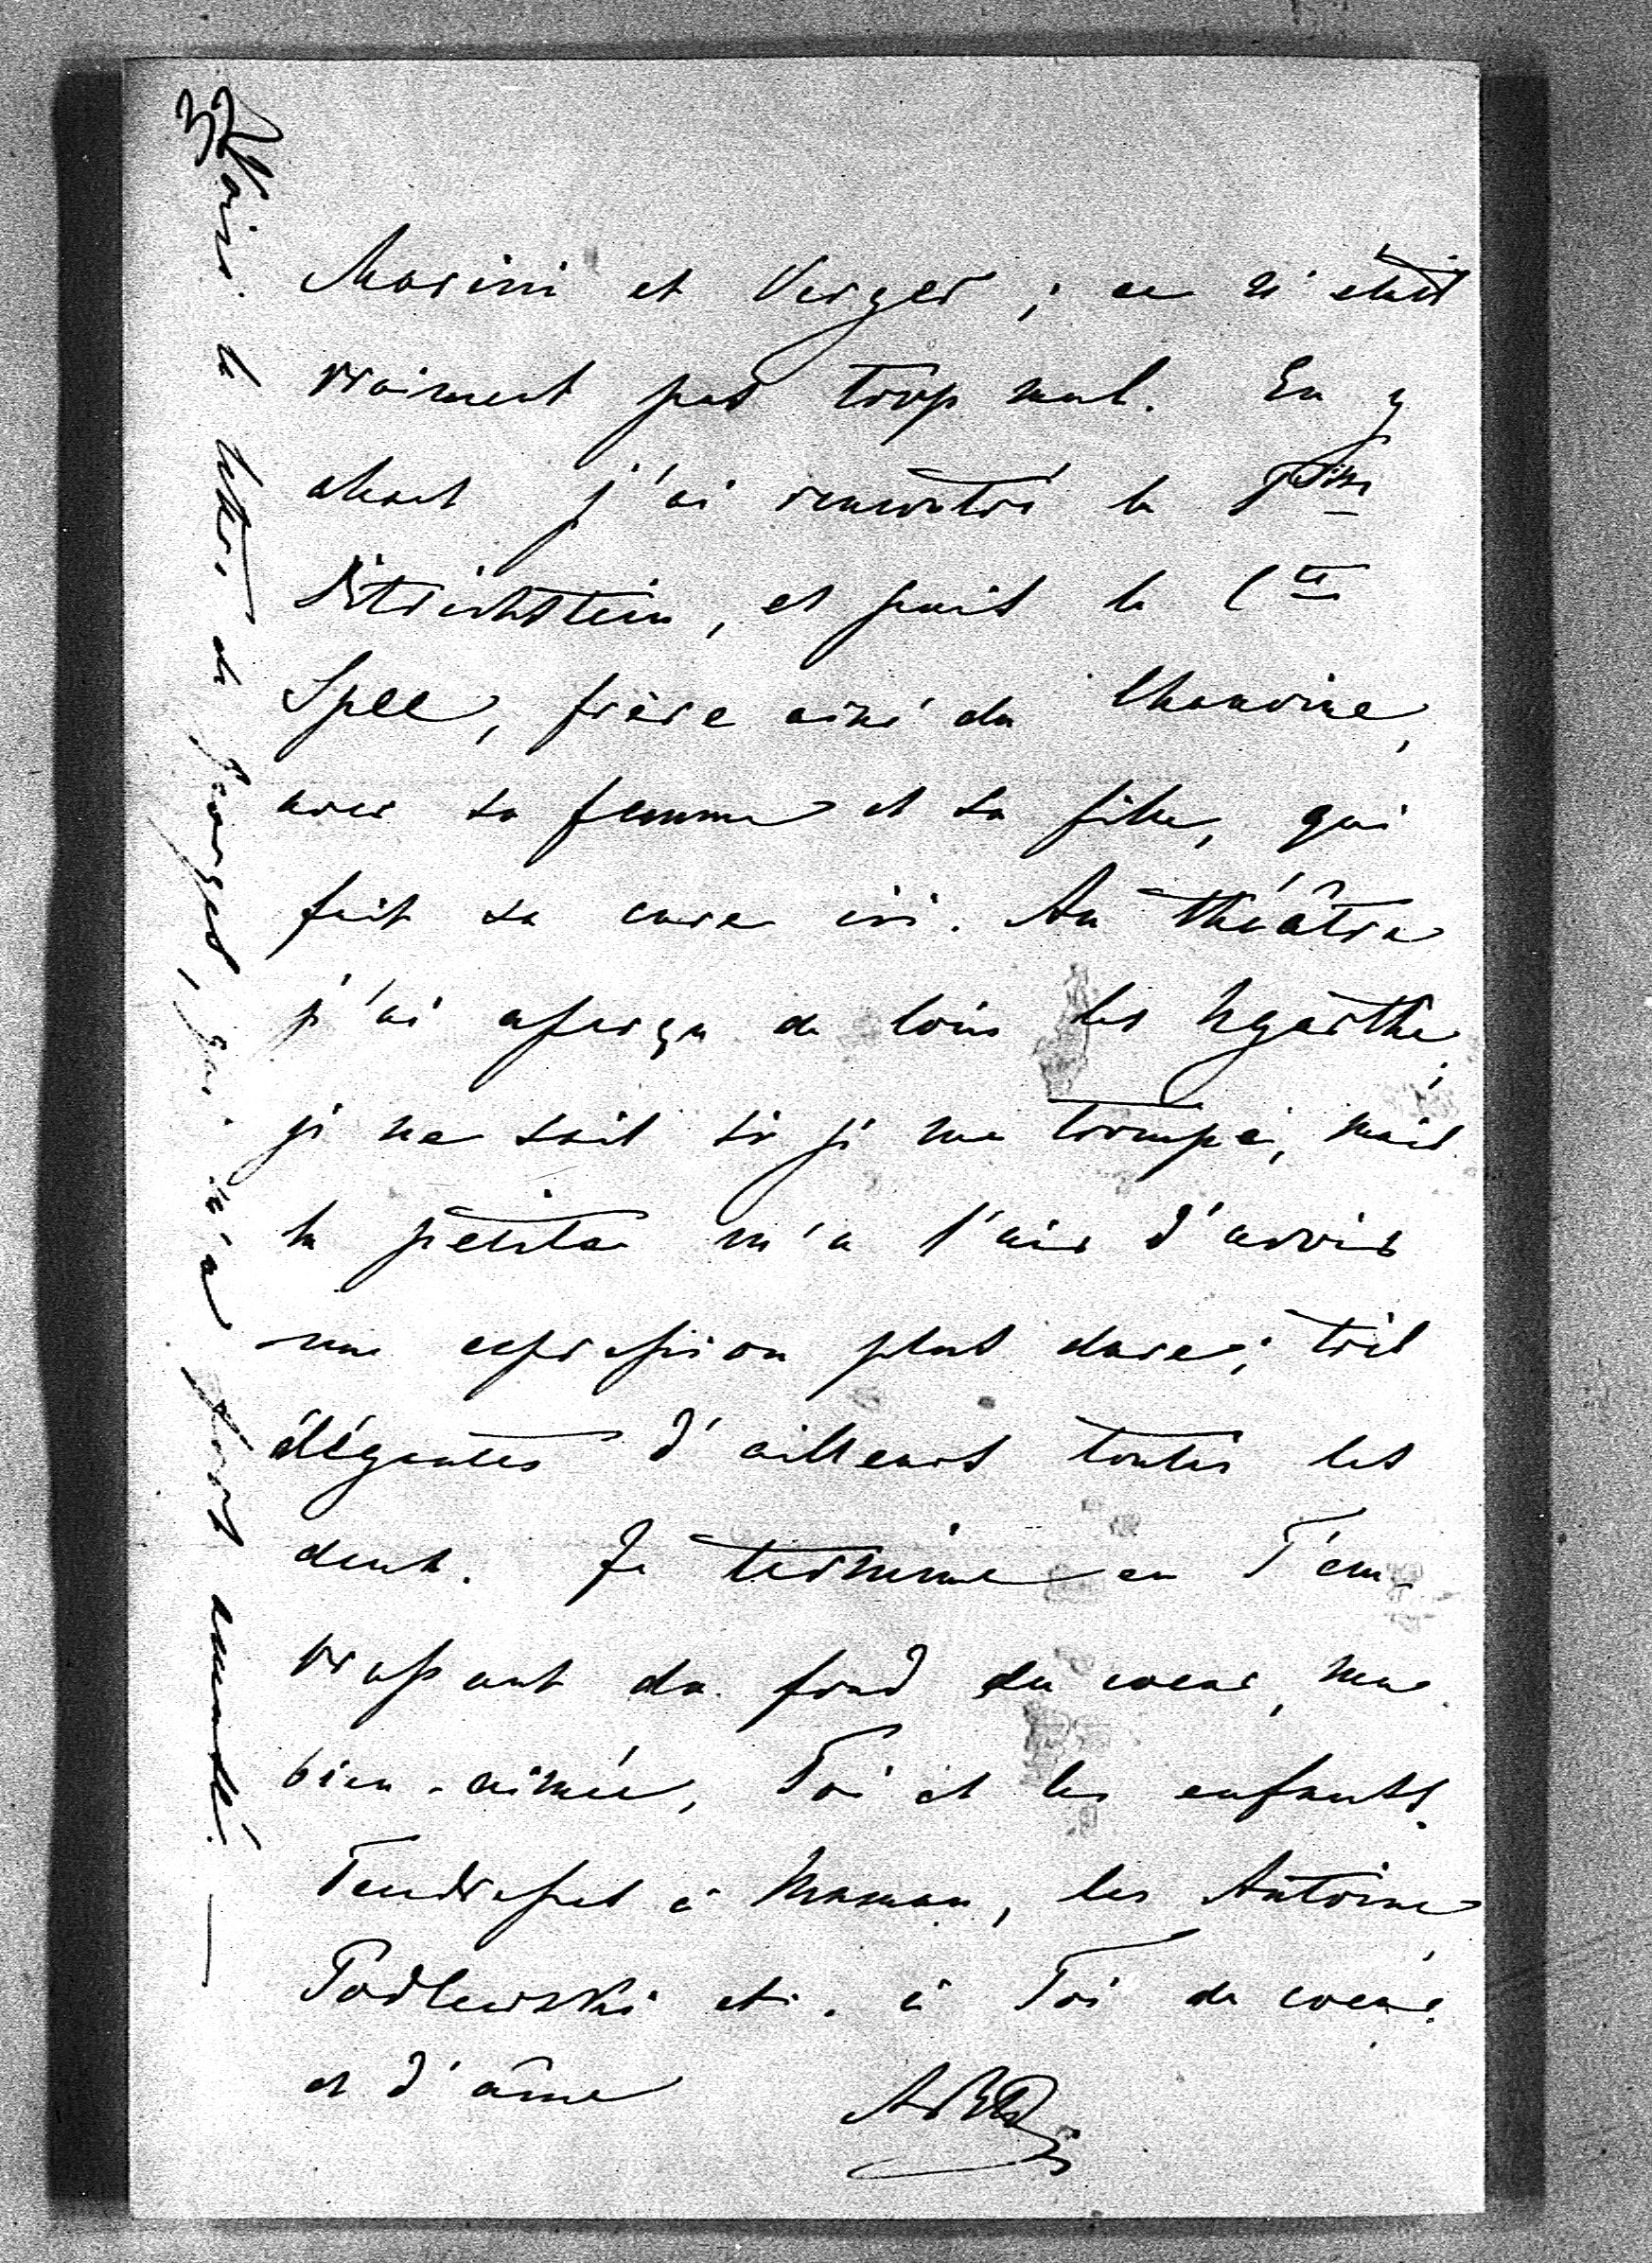 Marini et Verger ; ce n'était
vraiment pas trop mal. En y
allant j'ai rencontré la Pss
Ditrichstein, et puis le Cte
Spee, frère ainé du Chanoine,
avec sa femme et sa fille, qui
fait sa cure ici. Au théâtre
j'ai aperçu de loin les Ugarthe ;
je ne sais si je me trompe, mais
la petite m'a l'air d'avoir
une expression plus dure ; très
élégantes d'ailleurs toutes les
deux. Je termine en T'em-
brassant du fond du coeur, ma
bien-aimée, Toi et les enfants.
Tendresses à Maman, les Antoine,
Podlewski etc. à Toi de coeur
et d'âme
la lettre de Georges, qui m'a fort amusé. —